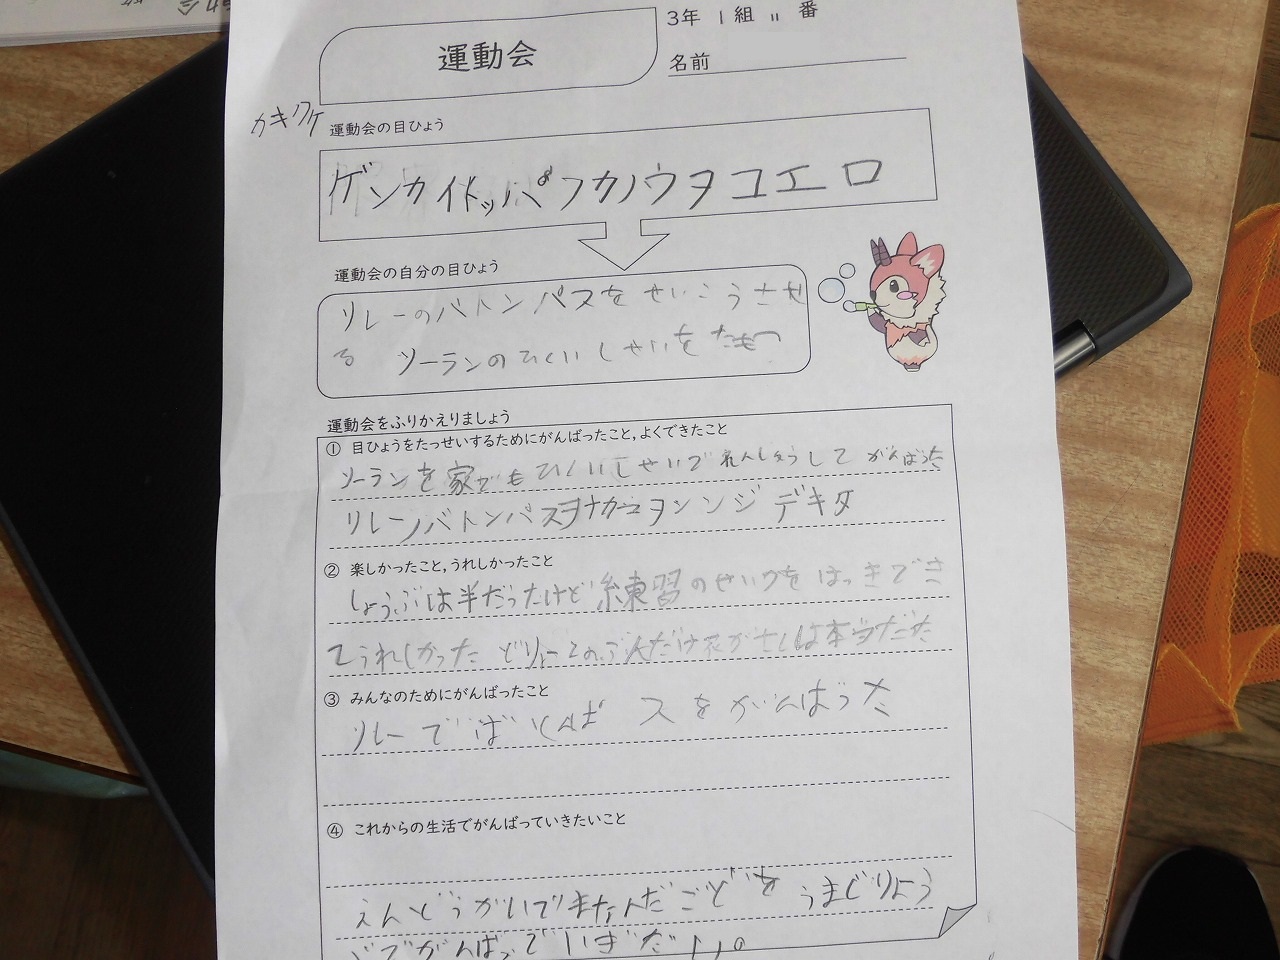 3年 1組 11番
運動会
名前
カキワケ
運動会の目ひょう
ゲンカイトッパ フカノウヲコエロ
運動会の自分の目ひょう
リレーのバトンパスをせいこうさせ
る ソーランのひくいしせいをたもつ
運動会をふりかえりましょう
① 目ひょうをたっせいするためにがんばったこと,よくできたこと
ソーランを家でもひくいしせいでれんしゅうして がんばった
リレーノバトンパスヲ デキタ
② 楽しかったこと,うれしかったこと
しょうぶは半だったけど練習のせいかをはっきでき
てうれしかった どりょくのぶんだけ は本当だった
③ みんなのためにがんばったこと
リレーでばとんぱスをがんばった
④ これからの生活でがんばっていきたいこと
うんどうかいでまなんだことを